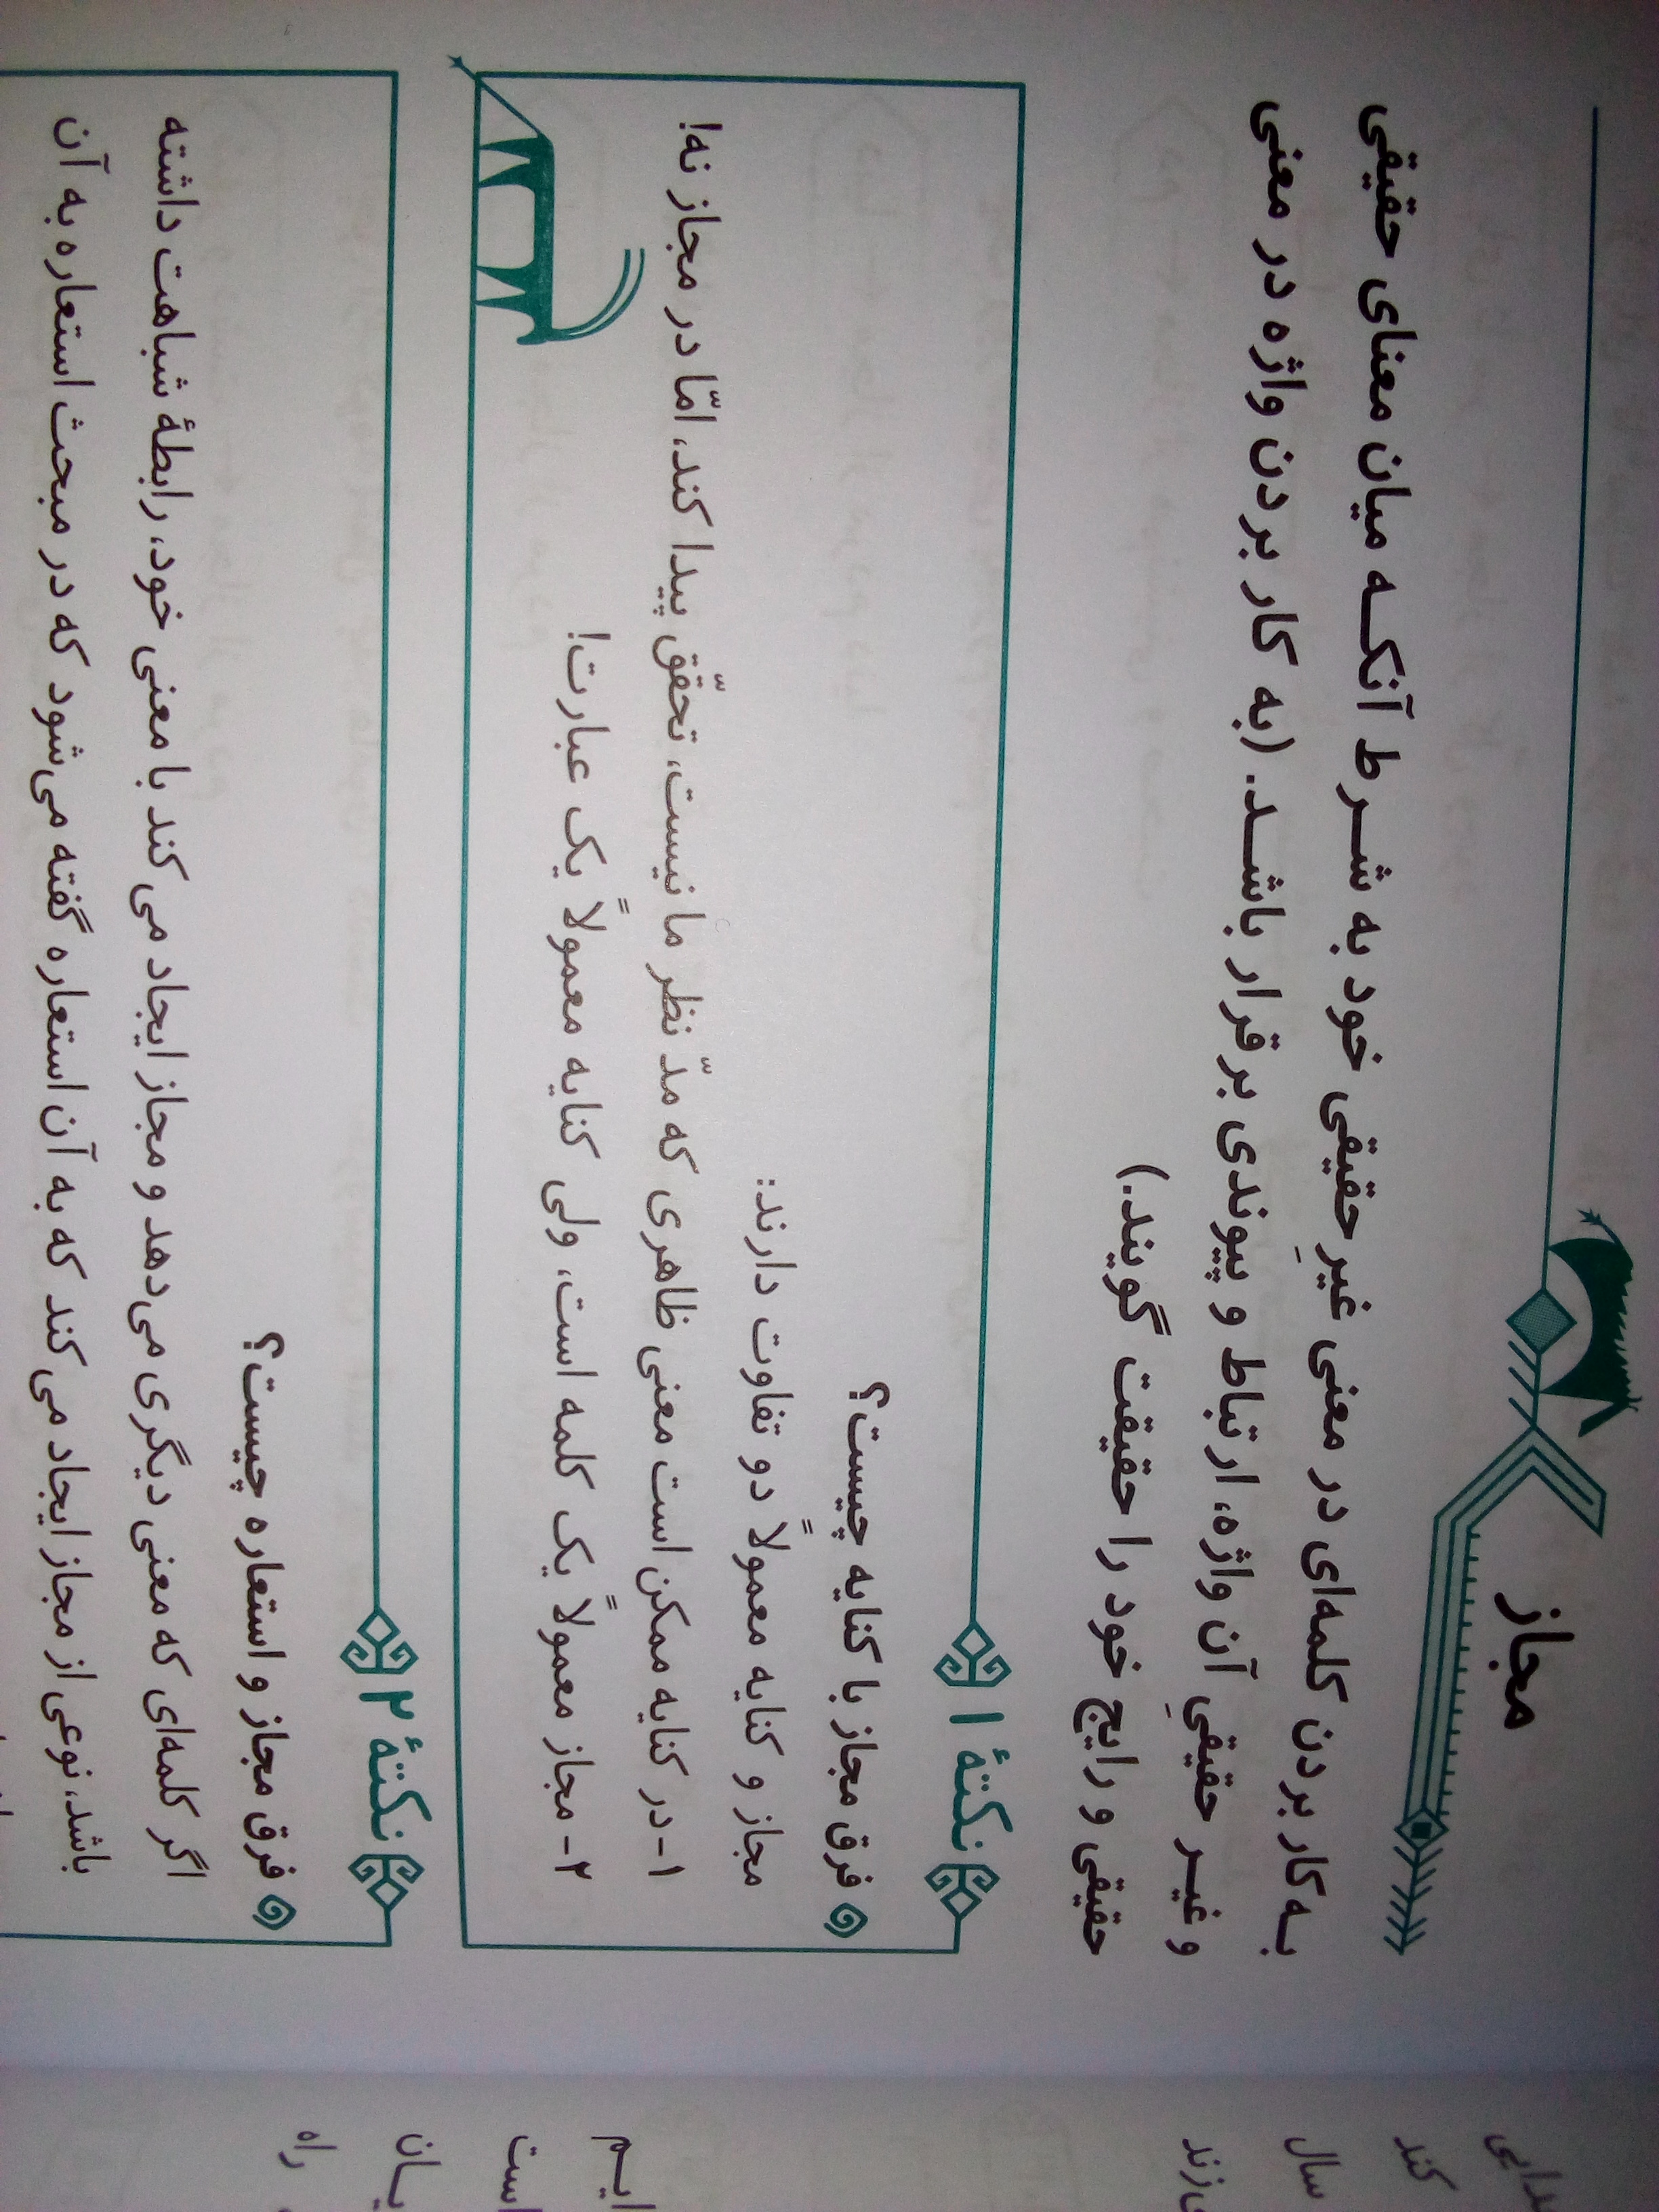 مجاز
به‌کار بردن کلمه‌ای در معنی غیرِ حقیقی خود به شرط آنکه میان معنای حقیقی
و غیر حقیقیِ آن واژه، ارتباط و پیوندی برقرار باشد. (به کار بردن واژه در معنی
حقیقی و رایج خود را حقیقت گویند.)
نکتهٔ ۱
فرق مجاز با کنایه چیست؟
مجاز و کنایه معمولاً دو تفاوت دارند:
۱- در کنایه ممکن است معنی ظاهری که مدّ نظر ما نیست، تحقّق پیدا کند، امّا در مجاز نه!
۲- مجاز معمولاً یک کلمه است، ولی کنایه معمولاً یک عبارت!
نکتهٔ ۲
فرق مجاز و استعاره چیست؟
اگر کلمه‌ای که معنی دیگری می‌دهد و مجاز ایجاد می‌کند با معنی خود، رابطهٔ شباهت داشته
باشد، نوعی از مجاز ایجاد می‌کند که به آن استعاره گفته می‌شود که در مبحث استعاره به آن
کند
سال
ایم
است
یان
راه